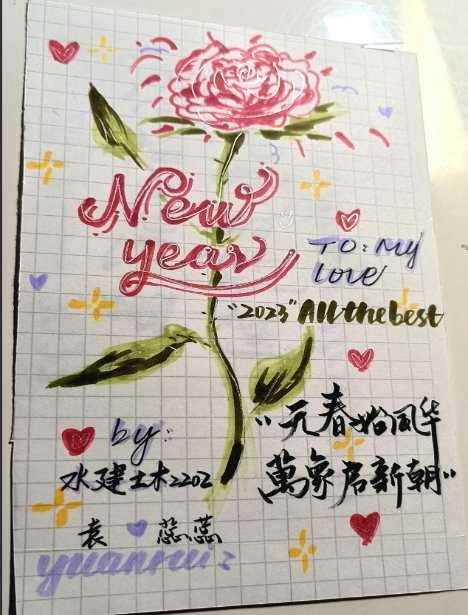 New
year
TO: My
love
"2023" All the best
"元春始风华
萬象启新朝"
by:
水建土木2202
袁 蕊蕊